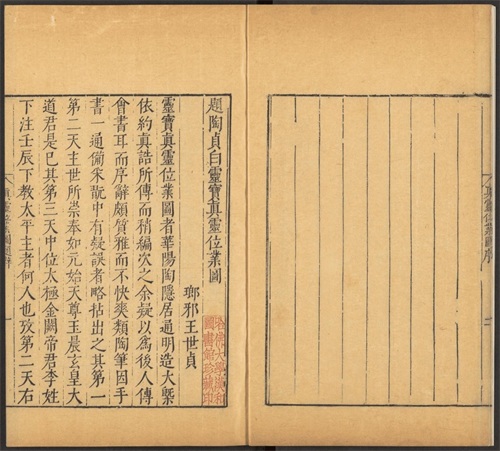 真靈位業圖序
題陶貞白靈寶真靈位業圖
瑯邪王世貞
哈佛大學漢和
圖書館珍藏印
靈寶真靈位業圖者華陽陶隱居通明造大槩
依約真誥所傳而稍編次之余疑以爲後人傳
會書耳而序辭頗質雅而不快爽類陶筆因手
書一通備采翫中有疑誤者略拈出之其第一
第二天主世所崇奉如元始天尊玉晨玄皇大
道君是已其第三天中位太極金闕帝君李姓
下注壬辰下教太平主者何人也攷第二天右